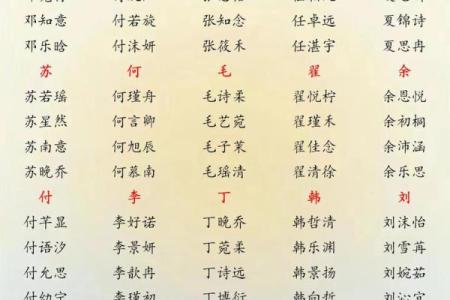 邓知意 付若旋 张知念 任卓远 夏锦诗
邓乐晗 付沫妍 张筱禾 任湛宇 夏思冉
苏 何 毛 翟 余
苏若瑶 何瑾舟 毛诗柔 翟悦柠 余恩悦
苏星然 何言卿 毛艺菀 翟瑾禾 余初桐
苏南意 何旭辰 毛子茉 翟佳念 余沛涵
苏晚乔 何慕南 毛瑶清 翟清徐 余乐思
付 李 丁 韩 刘
付芊显 李好诺 丁晚乔 韩哲清 刘沫怡
付语汐 李景妍 丁菀柔 韩乐渊 刘雪苒
付允思 李歆冉 丁诗远 韩景扬 刘婉茹